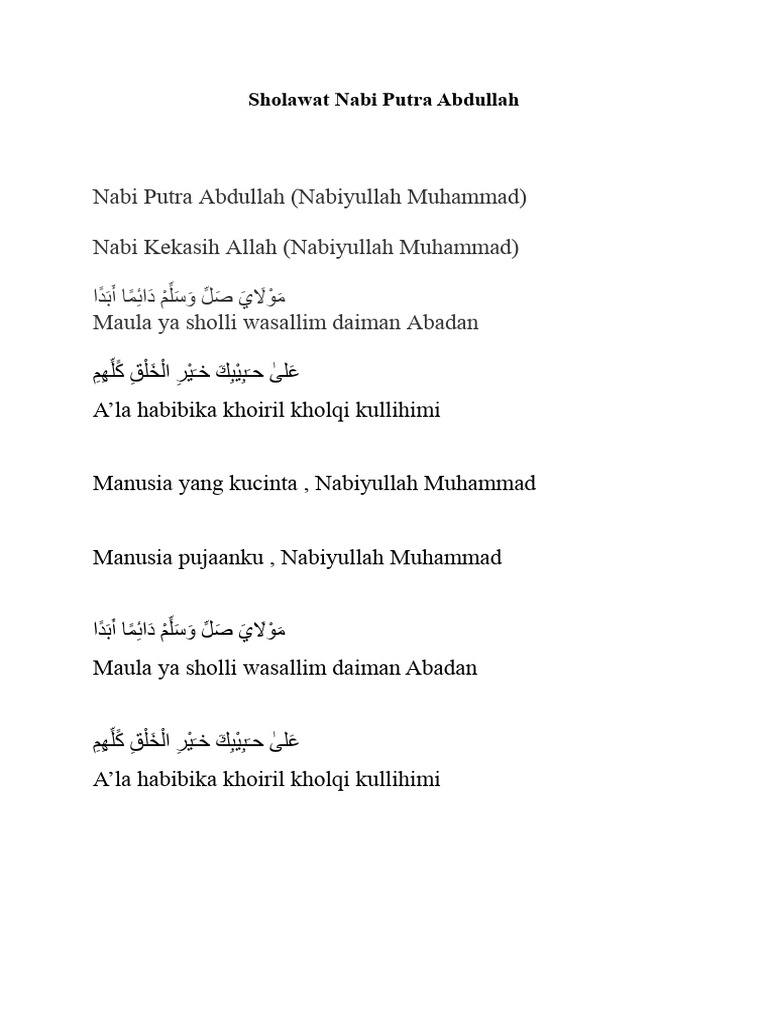 Sholawat Nabi Putra Abdullah
Nabi Putra Abdullah (Nabiyullah Muhammad)
Nabi Kekasih Allah (Nabiyullah Muhammad)
مَوْلَايَ صَلِّ وَسَلِّمْ دَائِمًا أَبَدًا
Maula ya sholli wasallim daiman Abadan
عَلىٰ حـَبِيْبِكَ خـَيْرِ الْخَلْقِ كُلِّهِمِ
A’la habibika khoiril kholqi kullihimi
Manusia yang kucinta , Nabiyullah Muhammad
Manusia pujaanku , Nabiyullah Muhammad
مَوْلَايَ صَلِّ وَسَلِّمْ دَائِمًا أَبَدًا
Maula ya sholli wasallim daiman Abadan
عَلىٰ حـَبِيْبِكَ خـَيْرِ الْخَلْقِ كُلِّهِمِ
A’la habibika khoiril kholqi kullihimi